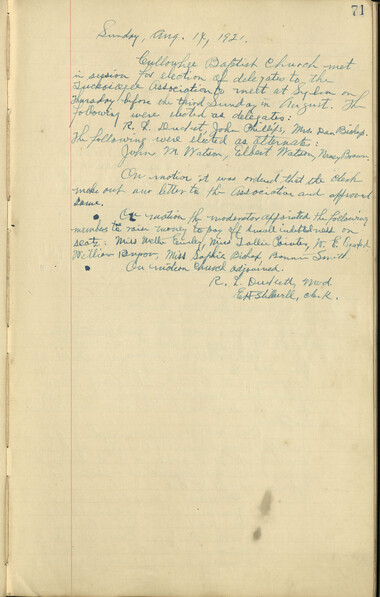 71
Sunday, Aug. 14, 1921.
Cullowhee Baptist Church met
in session for election of delegates to the
Tuckaseigee Association to meet at Sylva on
Thursday before the third Sunday in August. The
following were elected as delegates:
R. L. Duckett, John Phillips, Mrs. Dan Bishop.
The following were elected as alternates:
John M. Watson, Elbert Watson, Nancy Brown,
On motion it was ordered that the Clerk
make out our letter to the Association and approved
same.
On motion the moderator appointed the following
members to raise money to pay off small indebtedness on
seats: Miss Ensley, Miss Sallie W. E.
William Miss Sophie Bishop, Bonnie Smith.
On motion Church adjourned.
R. L. Duckett, Mod.
E. H. Stillwell, Clerk.